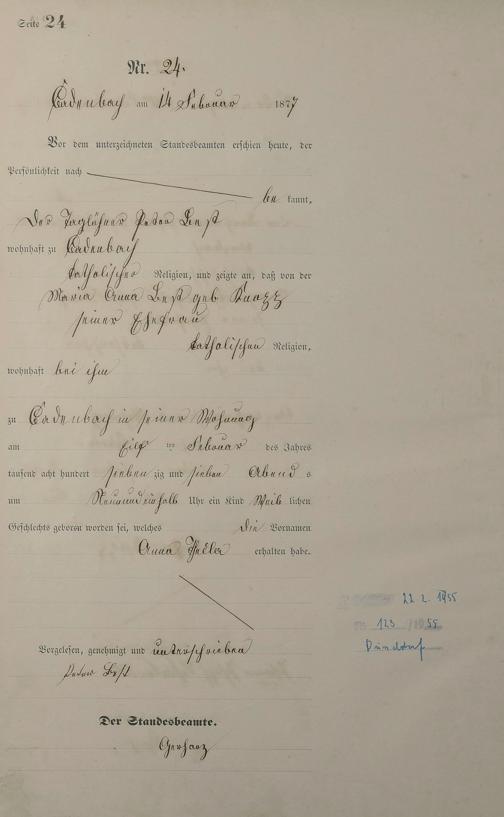 Seite 24
Nr. 24.
Cadenbach am 14 Februar 1877
Vor dem unterzeichneten Standesbeamten erschien heute, der
Persönlichkeit nach
be kannt,
Der Taglöhner Peter Best
wohnhaft zu Cadenbach
katholischer Religion, und zeigte an, daß von der
Maria Anna Best geb Knozz
seiner Ehefrau
katholischen Religion,
wohnhaft bei ihm
zu Cadenbach in seiner Wohnung
am Eilf ten Februar des Jahres
tausend acht hundert sieben zig und sieben Abend s
um Neunundeinhalb Uhr ein Kind Weib lichen
Geschlechts geboren worden sei, welches die Vornamen
Anna erhalten habe.
Vorgelesen, genehmigt und unterschrieben
Peter Best
Der Standesbeamte.
Gerharz
22. 2. 1955
123 / 1955